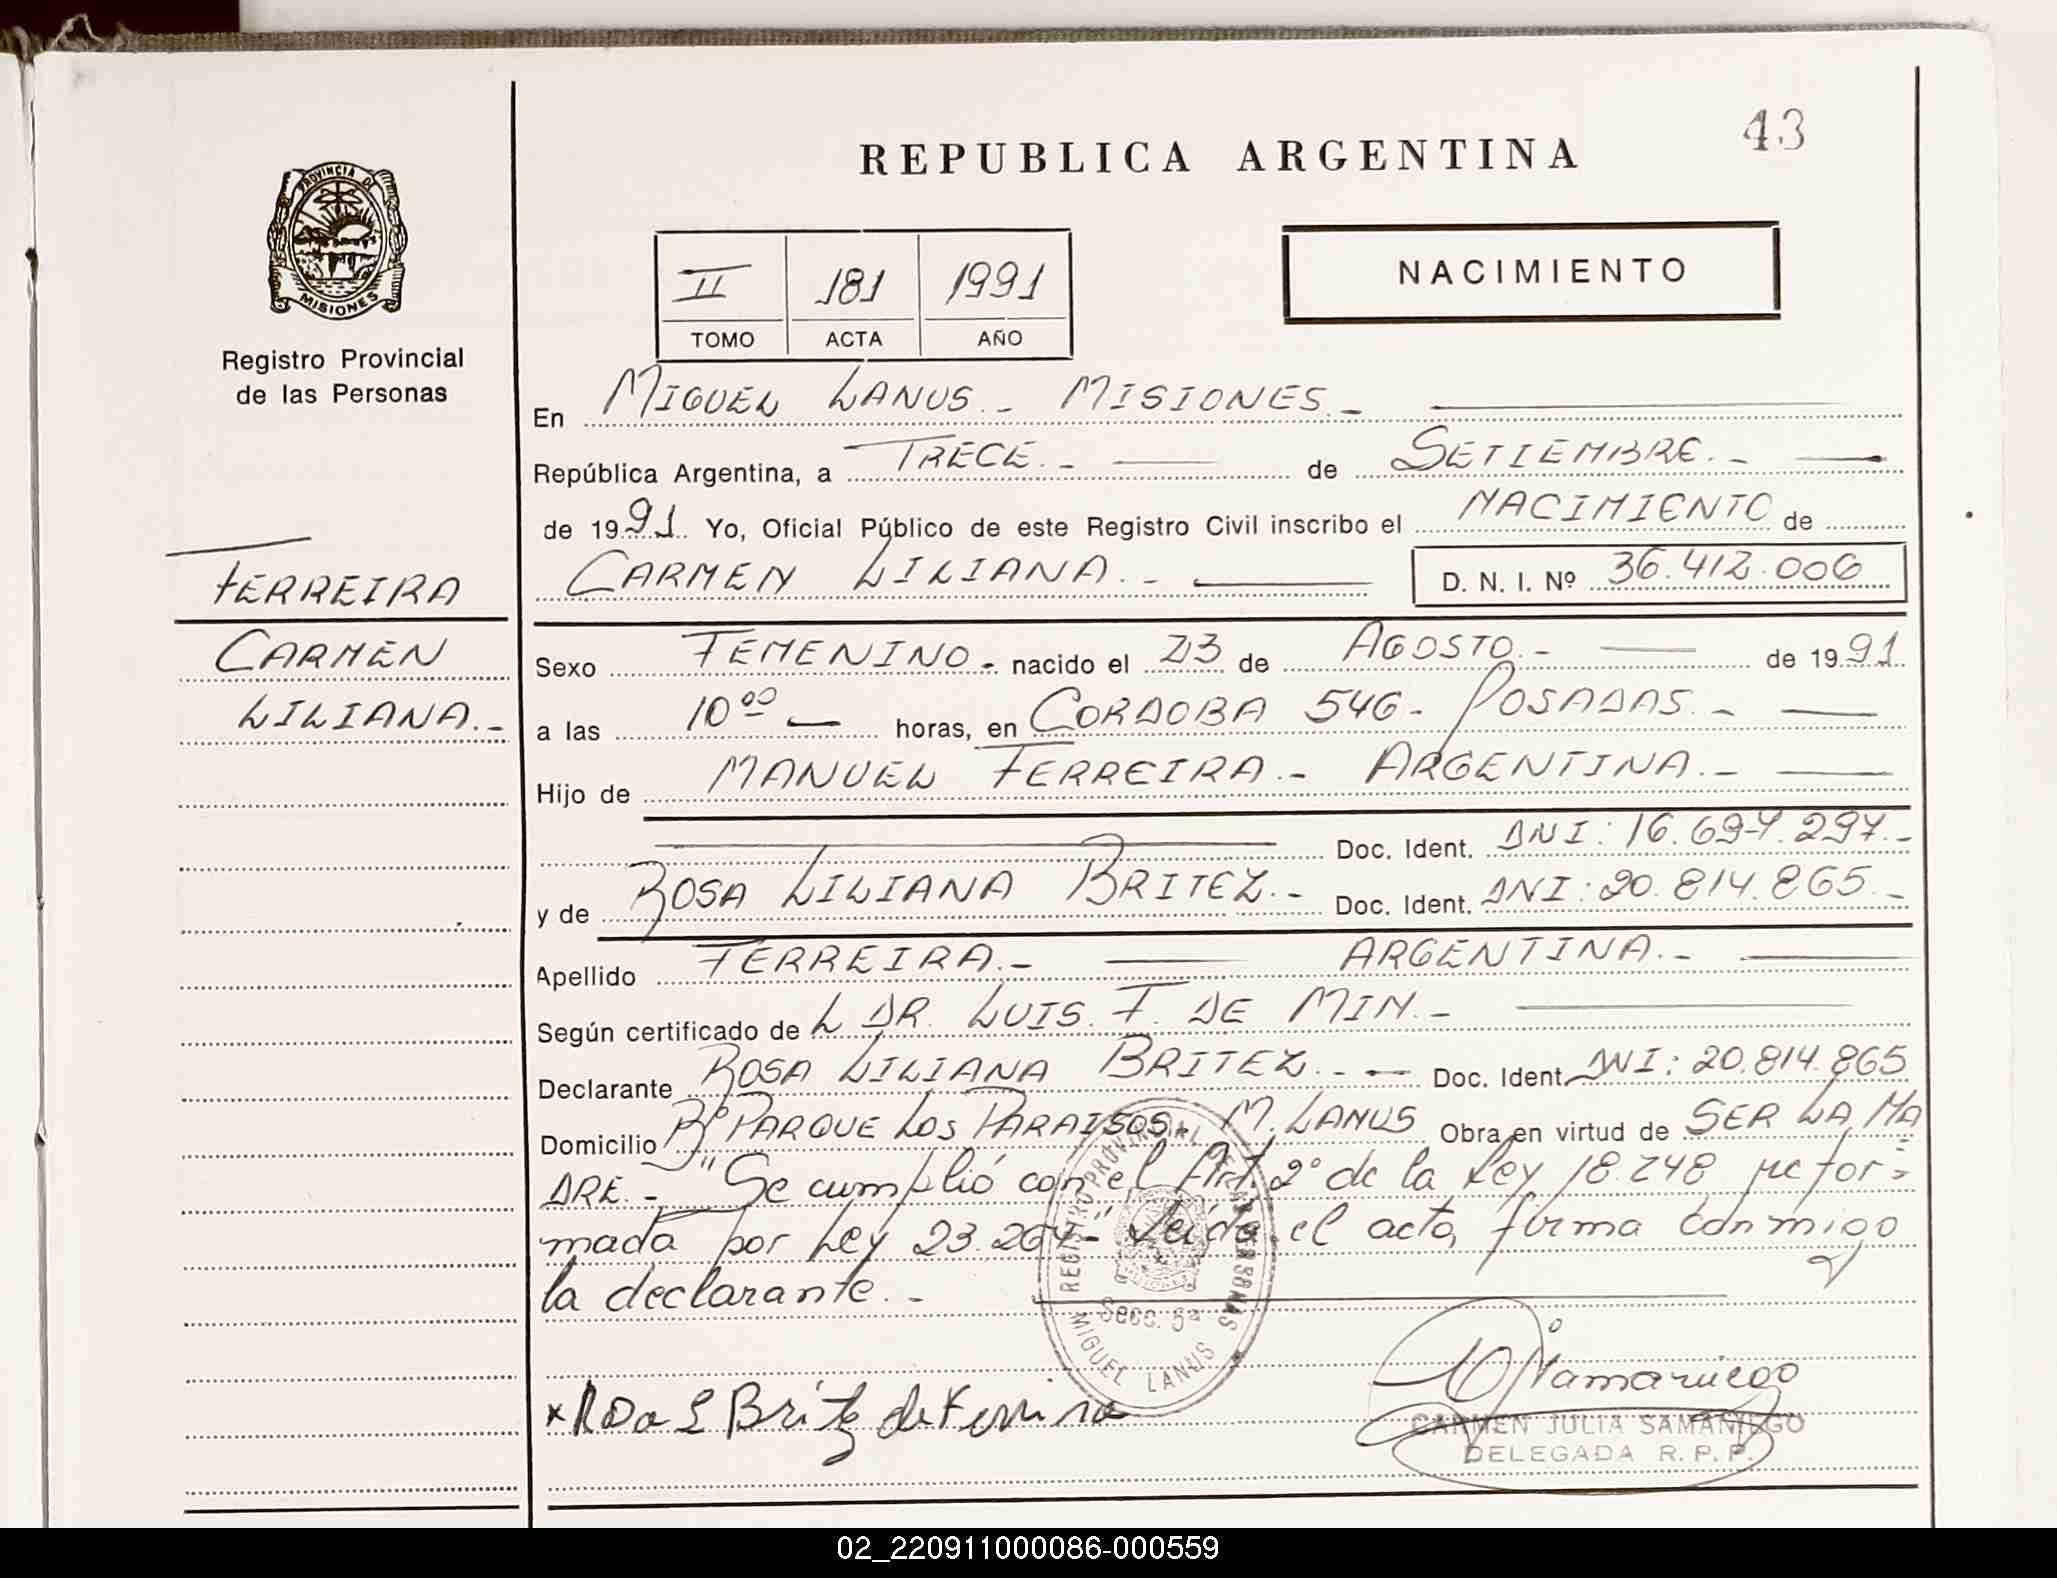 43
REPUBLICA ARGENTINA
PROVINCIA DE
MISIONES
Registro Provincial
de las Personas
II 181 1991
TOMO ACTA AÑO
NACIMIENTO
En MIGUEL LANUS.- MISIONES.-
República Argentina, a TRECE.- de SETIEMBRE.-
de 1991. Yo, Oficial Público de este Registro Civil inscribo el NACIMIENTO de
CARMEN LILIANA.- D. N. I. Nº 36.412.006
FERREIRA
CARMEN
LILIANA.-
Sexo FEMENINO.- nacido el 23 de AGOSTO.- de 1991.
a las 10⁰⁰ horas, en CORDOBA 546- POSADAS.-
Hijo de MANUEL FERREIRA.- ARGENTINA.-
Doc. Ident. DNI: 16.694.297.-
y de ROSA LILIANA BRITEZ.- Doc. Ident. DNI: 20.814.865.-
Apellido FERREIRA.- ARGENTINA.-
Según certificado de L DR. LUIS. F. DE MIN.-
Declarante ROSA LILIANA BRITEZ.- Doc. Ident. DNI: 20.814.865
Domicilio Bº PARQUE LOS PARAISOS. M. LANUS Obra en virtud de SER LA MA
DRE.- "Se cumplió con el Art. 2º de la Ley 18.248 refor=
mada por Ley 23.264-" Leída el acta, firma conmigo
la declarante.-
REGISTRO PROVINCIAL DE LAS PERSONAS
Secc. 5ª
MIGUEL LANUS
x Rosa L Britez de Ferreira
CARMEN JULIA SAMANIEGO
DELEGADA R. P. P.
02_220911000086-000559